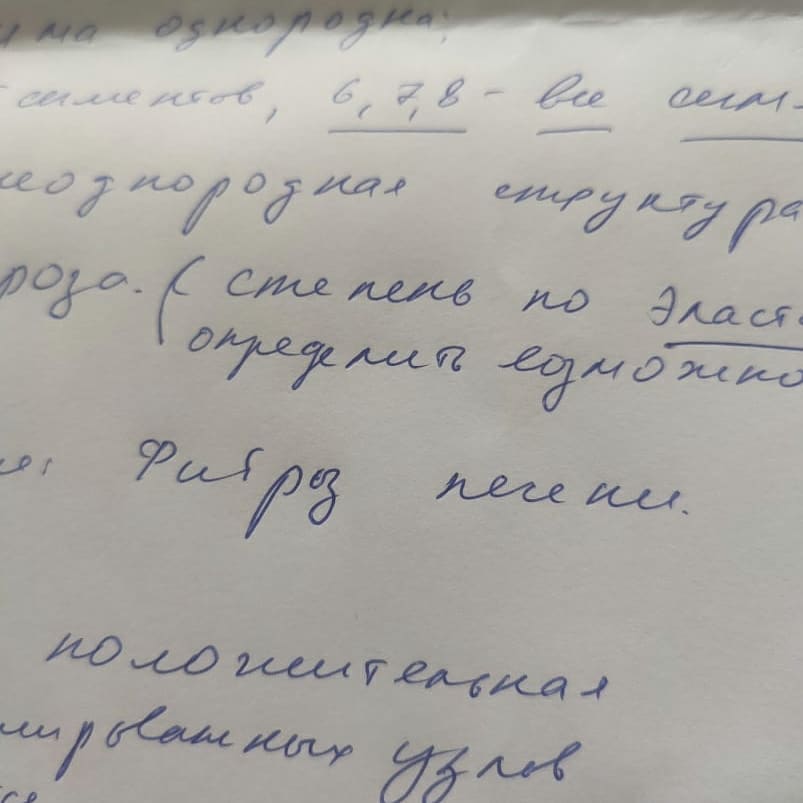 има однородна;
сегментов, 6,7,8 - все сегм-
неоднородная структура
роза. (степень по эласт
определить возможно
Фиброз печени.
положительная
мированных узлов